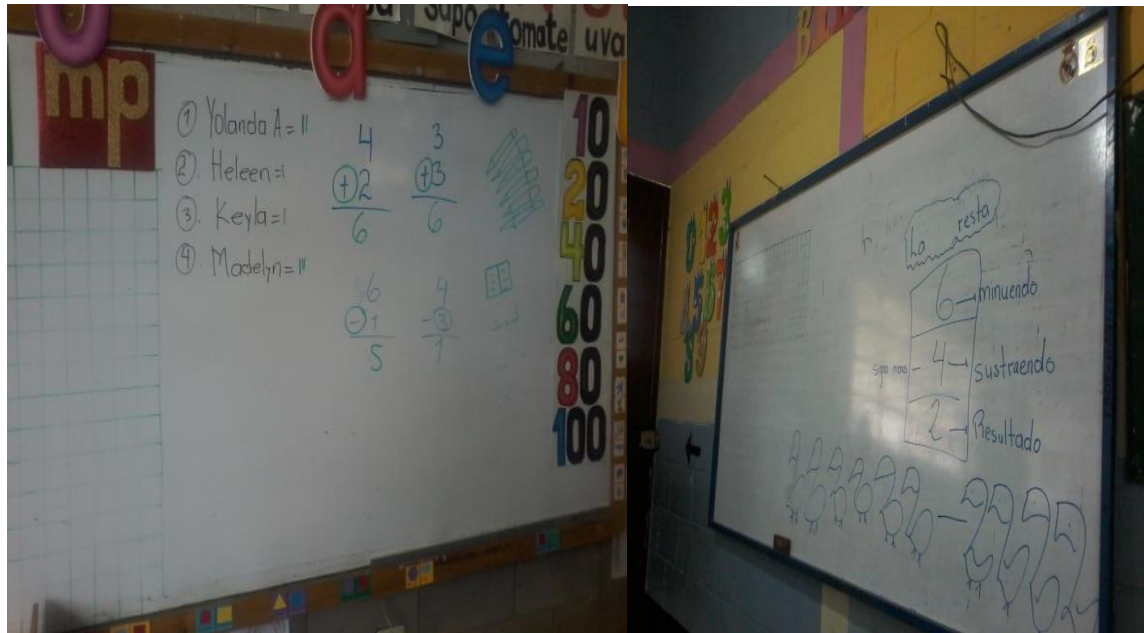 Supo tomate uva
o a e
mp
① Yolanda A = III
②. Heleen = I
③. Keyla = I
④. Madelyn = III
4
+2
6
3
+3
6
6
-1
5
4
-3
1
10
20
40
60
80
100
0 1 2 3
4 5 6 7
8 9
La resta
6 → minuendo
signo menos - 4 → sustraendo
2 → Resultado